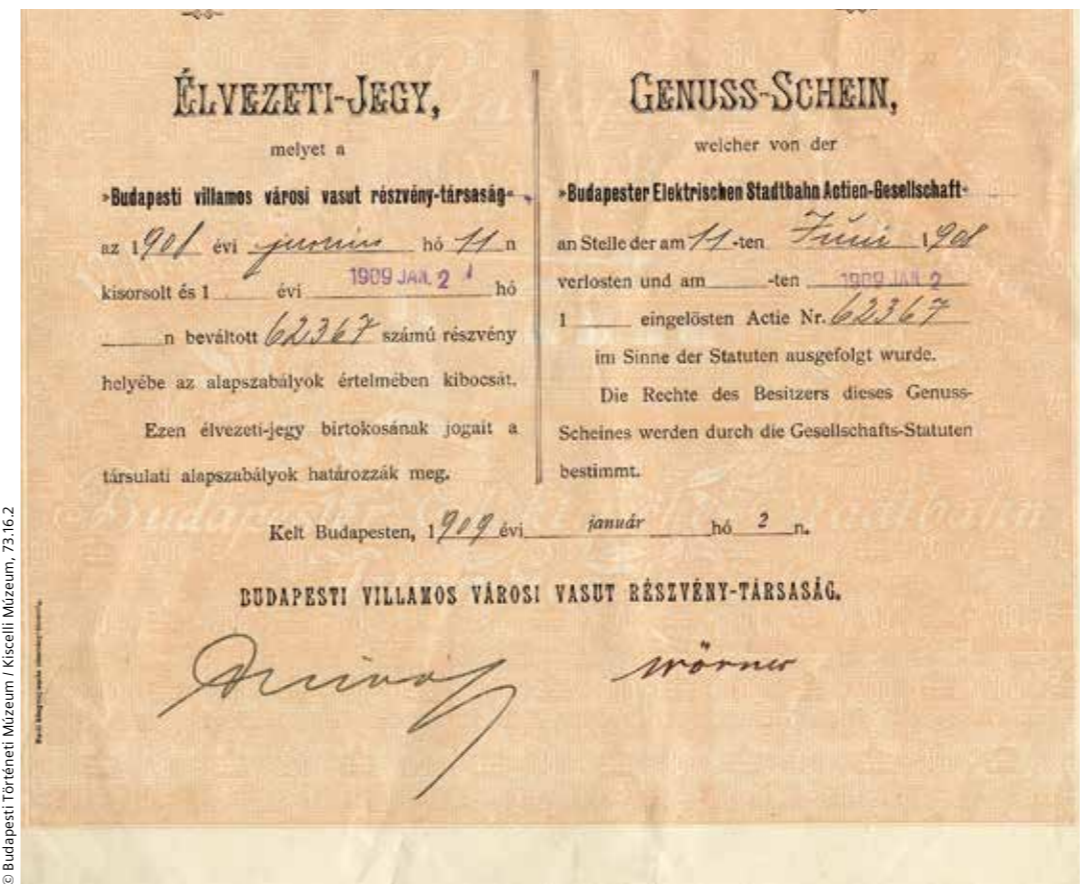 ÉLVEZETI-JEGY,
melyet a
»Budapesti villamos városi vasut részvény-társaság«
az 1908 évi junius hó 11 n
kisorsolt és 1 évi 1909 JAN. 2 hó
n beváltott 62367 számú részvény
helyébe az alapszabályok értelmében kibocsát.
Ezen élvezeti-jegy birtokosának jogait a
társulati alapszabályok határozzák meg.
GENUSS-SCHEIN,
welcher von der
»Budapester Elektrischen Stadtbahn Actien-Gesellschaft«
an Stelle der am 11-ten Juni 1908
verlosten und am -ten 1909 JAN. 2
1 eingelösten Actie Nr. 62367
im Sinne der Statuten ausgefolgt wurde.
Die Rechte des Besitzers dieses Genuss-
Scheines werden durch die Gesellschafts-Statuten
bestimmt.
Kelt Budapesten, 1909 évi január hó 2 n.
BUDAPESTI VILLAMOS VÁROSI VASUT RÉSZVÉNY-TÁRSASÁG.
Wörner
© Budapesti Történeti Múzeum / Kiscelli Múzeum, 73.16.2